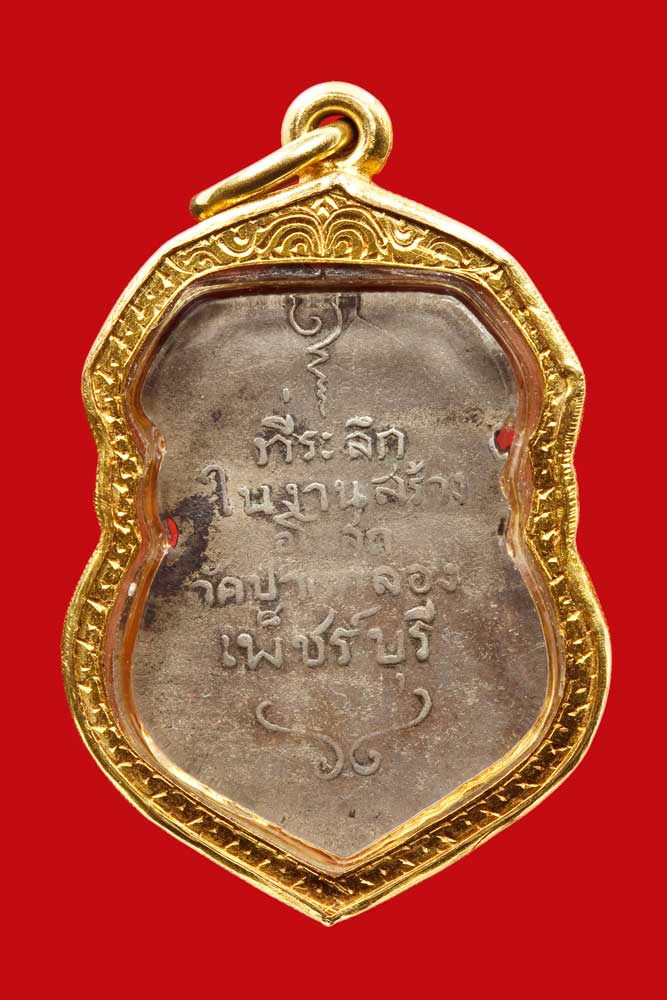 ที่ระลึก
ในงานสร้าง
วัดปากคลอง
เพ็ชร์บุรี